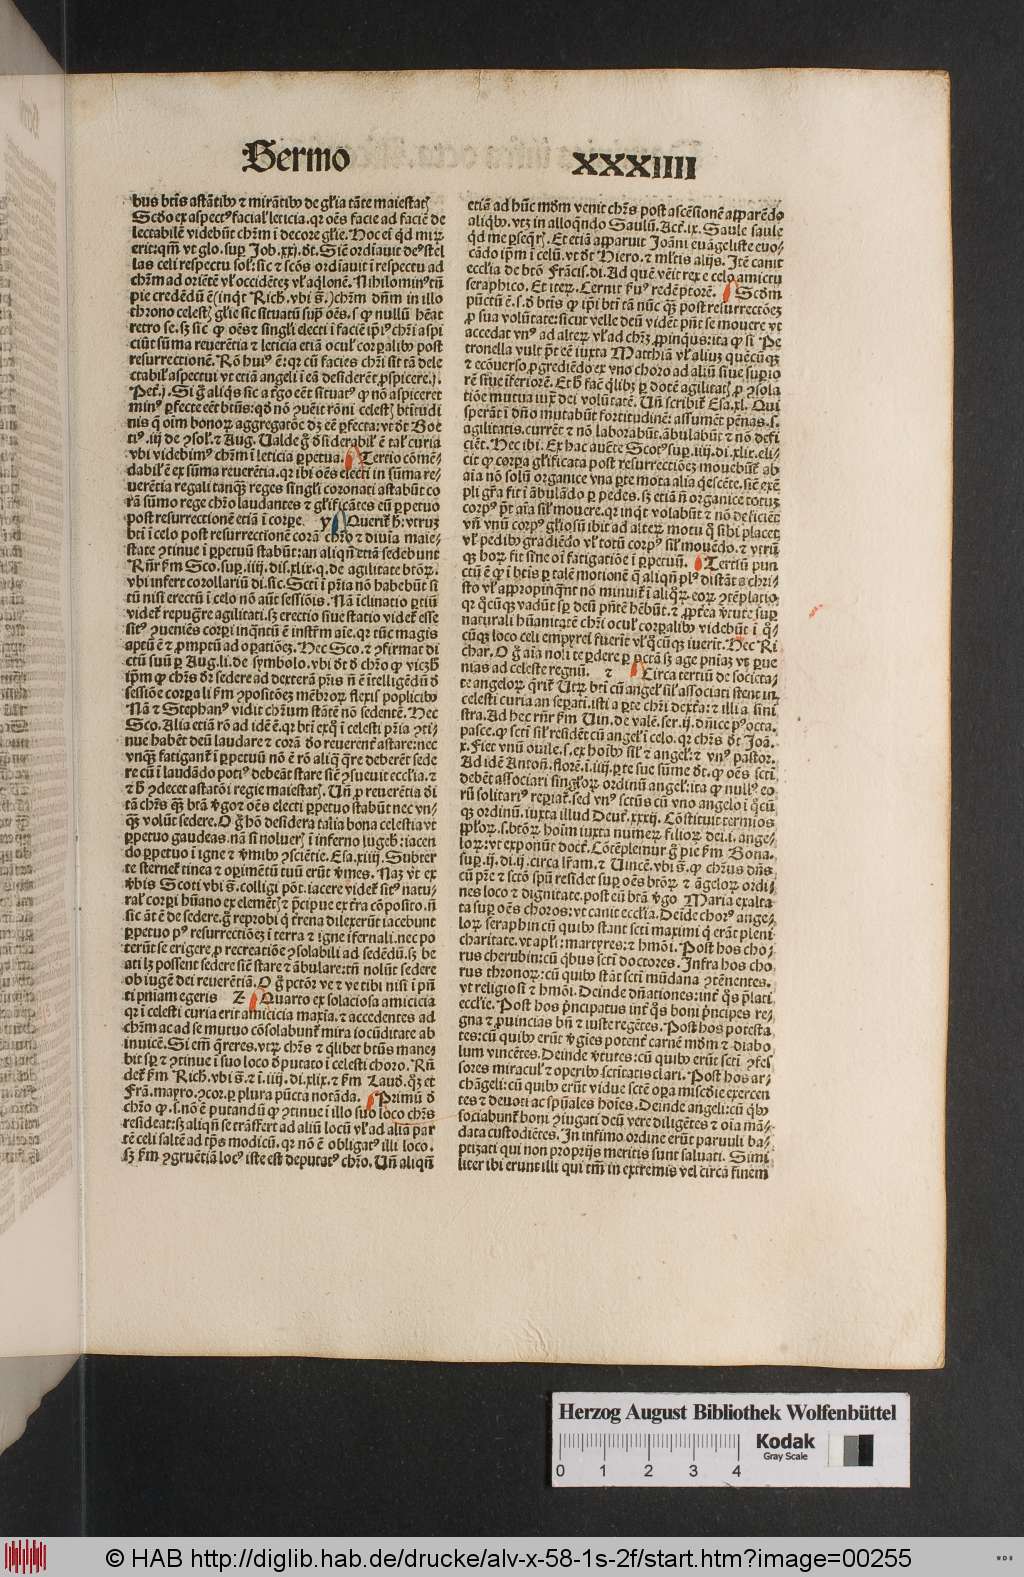 Sermo XXXIIII
bus btis astātibꝰ ⁊ mirātibꝰ de gl'ia tāte maiestatꝭ
Scd'o ex aspectꝰ facial' leticia. qꝛ oēs facie ad faciē de
lectabilē videbūt chr̄m i decore gl'ie. Hoc ei qd miꝝ
erit: qm̄ vt glo. suꝑ Job. xxxj. dt. Sic̄ ordiauit deꝰ stel
las celi respectu sol': sic ⁊ scōs ordiauit i respectu ad
chr̄m ad oriētē vl' occidētē vl' aq̄lonē. Nihilominꝰ tn̄
throno celestꝭ gl'ie sic situatū sup̄ oēs. s ꝙ nullū hēat
retro se. sꝫ sic ꝙ oēs ⁊ singl'i electi i faciē ip̄iꝰ chr̄i aspi
ciūt sūma reuerētia ⁊ leticia etiā ocul' corꝑalibꝰ post
resurrectionē. Rō huiꝰ ē: qꝛ cū facies chr̄i sit tā dele
ctabil' aspectui vt etiā angeli i eā desiderēt ꝓspicere. j.
minꝰ ꝑfecte eēt btūs: qd' nō ꝯuēit rōni celestꝭ btitudi
vbi videbimꝰ chr̄m i leticia ꝑpetua. Tercio cōmē-
dabil' ē ex sūma reuerētia. qꝛ ibi oēs electi in sūma re-
uerētia regali tanqꝫ reges singl'i coronati astabūt co
rā sūmo rege chr̄o laudantes ⁊ gl'ificātes eū ꝑpetuo
post resurrectionē etiā i corpe. y Querit' h': vtruꝫ
bti i celo post resurrectionē corā chr̄o ⁊ diuia maie-
state ꝯtinue i ꝑpetuū stabūt: an aliqn̄ etiā sedebunt
Rn̄r k'm Sco. suꝑ. iiij. dis. xlix. q. de agilitate btōꝝ.
vbi infert corollariū di. sic. Scti i pr̄ia nō habebūt si
tū nisi erectū i celo nō aūt sessiōis. Nā iclinatio ꝑtiū
videt' repugr̄e agilitati. sꝫ erectio siue statio videt' esse
aptū ē ⁊ ꝓmptū ad oꝑatiōeꝫ. Hec Sco. ⁊ ꝯfirmat di
ctū suū ꝑ Aug. li. de symbolo. vbi dt d' chr̄o ꝙ vicꝫ
ip̄m ꝙ chr̄s dr̄ sedere ad dexterā pr̄is nō ē itelligēdū d'
sessiōe corꝑa li k'm ꝯpositōeꝫ mēbroꝝ flexis poplicibꝰ
Nā ⁊ Stephanꝰ vidit chr̄um stātē nō sedentē. Hec
Sco. Alia etiā rō ad idē ē. qꝛ bti exn̄tes i celesti pr̄ia ꝯti-
nue habēt deū laudare ⁊ corā d'o reuerent' astare: nec
re cū i laudādo potiꝰ debeāt stare sic̄ ꝯsueuit eccl'ia. ⁊
⁊ h' ꝯdecet astatōi regie maiestatꝭ. Un̄ ꝓ reuerētia di
tā chr̄s qꝫ btā v̄go ⁊ oēs electi ꝑpetuo stabūt nec vn-
qꝫ volūt sedere. O g' hō desidera talia bona celestia vt
ꝑpetuo gaudeas. nā si nolueꝭ i inferno lugeb': iacen
do ꝑpetuo i igne ⁊ v̄mibꝰ ꝯsciētie. Esa. xiiij. Subter
te sternet' tinea ⁊ oꝑimētū tuū erūt v̄mes. Naꝫ vt ex
v̄bis Scoti vbi s̄. colligi pōt. iacere videt' sitꝰ natu-
ral' corꝑi hūano ex elemētꝭ ⁊ p̄cipue ex t'ra cōposito. n̄
sic āt ē de sedere. g' reprobi q t'rena dilexerūt iacebunt
ꝑpetuo pꝰ resurrectiōeꝫ i terra ⁊ igne ifernali. nec po
terūt se erigere ꝓ recreatiōe ꝯsolabili ad sedēdū. sꝫ be
ati lꝫ possent sedere sic̄ stare ⁊ ābulare: tn̄ nolūt sedere
ob iugē dei reuerētiā. O g' pctōr ve ⁊ ve tibi nisi i pn̄
ti pn̄iam egeris Z Quarto ex solaciosa amicicia
qꝛ i celesti curia erit amicicia maxīa. ⁊ accedentes ad
chr̄m ac ad se mutuo cōsolabunt' mira iocūditate ab
inuicē. Si em̄ q̄reres. vtꝝ chr̄s ⁊ q̄libet btūs mane-
bit sꝑ ⁊ ꝯtinue i suo loco d'putato i celesti choro. Rn̄
det' k'm Rich. vbi s̄. ⁊ i. iiij. di. xlix. ⁊ k'm Laud. qꝛ; et
Frā. mayro. ꝯcor. ꝑ plura pūcta notāda. Primū d'
chr̄o ꝙ. s. nō ē putandū ꝙ ꝯtinue i illo suo loco chr̄s
resideat: sꝫ aliqn̄ se trāsfert ad aliū locū vl' ad aliā par
tē celi saltē ad tp̄s modicū. qꝛ nō ē obligatꝰ illi loco.
sꝫ k'm ꝯgruētiā locꝰ iste est deputatꝰ chr̄o. Un̄ aliqn̄
etiā ad hūc mōm venit chr̄s post ascēsionē apparēdo
aliqbꝰ. vtꝫ in alloqn̄do Saulū. Act'. ix. Saule saule
qd me ꝑseqrꝭ. Et etiā apparuit Joāni euāgeliste euo-
cādo ip̄m i celū. vt dt Hiero. ⁊ ml'tis alijs. Itē canit
eccl'ia de btō Frācis. di. Ad quē vēit rex e celo amictu
seraphico. Et iteꝝ. Cernit s'uꝰ redēptorē. Scd'm
pūctū ē. s. d' btis ꝙ ip̄i bti tā nūc qꝫ post resurrectōeꝫ
ꝓ sua volūtate: sicut velle deū vidēt pn̄t se mouere vt
accedat vnꝰ ad alteꝝ vl' ad chr̄ꝫ ꝓpinqus: ita ꝙ si Pe
tronella vult p̄t eē iuxta Matthiā vl' aliuꝫ quēcūqꝫ
⁊ ecōuerso. ꝓgrediēdo ex vno choro ad aliū siue suꝑio
tiōe mutua iux̄ dei volūtatē. Un̄ scribit' Esa. xl. Qui
sperāt i dn̄o mutabūt fortitudinē: assumēt pēnas. s.
agilitatis. currēt ⁊ nō laborabūt. ābulabūt ⁊ nō defi
ciēt. Hec ibi. Ex hac aucte Scotꝰ suꝑ. iiij. di. xlix. eli-
cit ꝙ corꝑa gl'ificata post resurrectiōeꝫ mouebūt' ab
aīa nō solū organice vna ꝑte mota alia qescēte. sic̄ exē
pli gr̄a fit i ābulādo ꝑ pedes. sꝫ etiā n̄ organice totuꝫ
corpꝰ p̄t aīa sil' mouere. qꝛ inqt volabūt ⁊ nō deficiēt
vn̄ vnū corpꝰ gl'iosū ibit ad alteꝝ motu q sibi placet
vl' pedibꝰ gradiēdo vl' totū corpꝰ sil' mouēdo. ⁊ vtrū
qꝫ hoꝝ fit sine oi fatigatiōe i ꝑpetuū. Tertiū pun
ctū ē ꝙ i btis ꝑ talē motionē q aliqn̄ plꝰ distāt a chri-
sto vl' appropinqnt nō minuit' i aliq eoꝝ ꝯtēplatio.
qꝛ qcūqꝫ vadūt sꝑ deū pn̄tē hēbūt. ⁊ ꝓpt'ea v̄tute suꝑ
naturali hūanitatē chr̄i ocul' corꝑalibꝰ videbūt i q-
cūqꝫ loco celi empyrei fuerit vl' qcūqꝫ iuerit. Hec Ri
char. O g' aīa noli te ꝑdere ꝑ pctā sꝫ age pn̄iaꝫ vt ꝑue
nias ad celeste regnū. ⁊ Circa tertiū de societa-
te angeloꝝ q̄rit' Utꝝ bti cū angel' sil' associati stent in
celesti curia an seꝑati. isti a ꝑte chr̄i dext'a: ⁊ illi a sini
stra. Ad hec rn̄r k'm Uin. de valē. ser. ij. dn̄ice pꝰ octa.
pasce. ꝙ scti sil' residēt cū angel' i celo. qꝛ chr̄s dt Joā.
x. Fiet vnū ouile. s. ex hoibꝰ sil' ⁊ angel'. ⁊ vnꝰ pastor.
Ad idē Antoñ. florē. i. iiij. ꝑte sue sūme dt. ꝙ oēs scti
debēt associari singl'oꝝ ordinū angel': ita ꝙ nullꝰ eo
rū solitariꝰ reperiat'. sed vnꝰ sctūs cū vno angelo i qcū
qꝫ ordinū. iuxta illud Deut'. xxxij. Cōstituit termios
pploꝝ. s. btōꝝ hoim iuxta numeꝝ filioꝝ dei. i. ange-
loꝝ: vt exponūt doct'. Cōtēplemur g' pie k'm Bona.
suꝑ. ij. di. ij. circa lr̄am. ⁊ Uincē. vbi s̄. ꝙ chr̄us dn̄s
cū pr̄e ⁊ sctō spū residet suꝑ oēs btōꝝ ⁊ āgeloꝝ ordi-
nes loco ⁊ dignitate. post eū btā v̄go Maria exalta
ta suꝑ oēs choros: vt canit eccl'ia. Deīde chorꝰ ange-
loꝝ seraphin cū quibꝰ stant scti maximi q erāt pleni
charitate. vt apl'i: martyres: ⁊ hmōi. Post hos cho-
rus cherubin: cū qbus scti doctores. Infra hos cho
rus thronoꝝ: cū quibꝰ stāt scti mūdana ꝯtēnentes.
vt religiosi ⁊ hmōi. Deinde dn̄ationes: int' q̄s p̄lati
eccl'ie. Post hos p̄ncipatus int' q̄s boni p̄ncipes re-
gna ⁊ ꝓuincias bn̄ ⁊ iuste regētes. Post hos potesta
tes: cū quibꝰ erūt v̄gies potent' carnē mōm ⁊ diabo
lum vincētes. Deinde v̄tutes: cū quibꝰ erūt scti ꝯfes
sores miracul' ⁊ oꝑibꝰ sctitatis clari. Post hos ar-
chāgeli: cū quibꝰ erūt vidue sctē oꝑa miscd'ie exercen
tes ⁊ deuoti ac spūales hoīes. Deinde angeli: cū qbꝰ
sociabunt' boni ꝯiugati deū vere diligētes ⁊ oīa mā-
data custodiētes. In infimo ordine erūt paruuli ba-
ptizati qui non proprijs meritis sunt saluati. Simi
liter ibi erunt illi qui tm̄ in extremis vel circa finem
Herzog August Bibliothek Wolfenbüttel
0 1 2 3 4
Kodak
Gray Scale
© HAB http://diglib.hab.de/drucke/alv-x-58-1s-2f/start.htm?image=00255